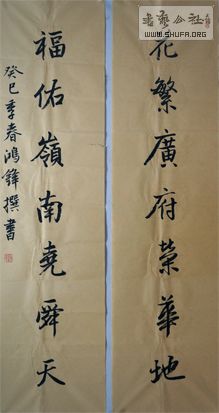 花繁廣府榮華地
福佑嶺南堯舜天
癸巳季春鴻鋒撰書
書藝公社
WWW.SHUFA.ORG